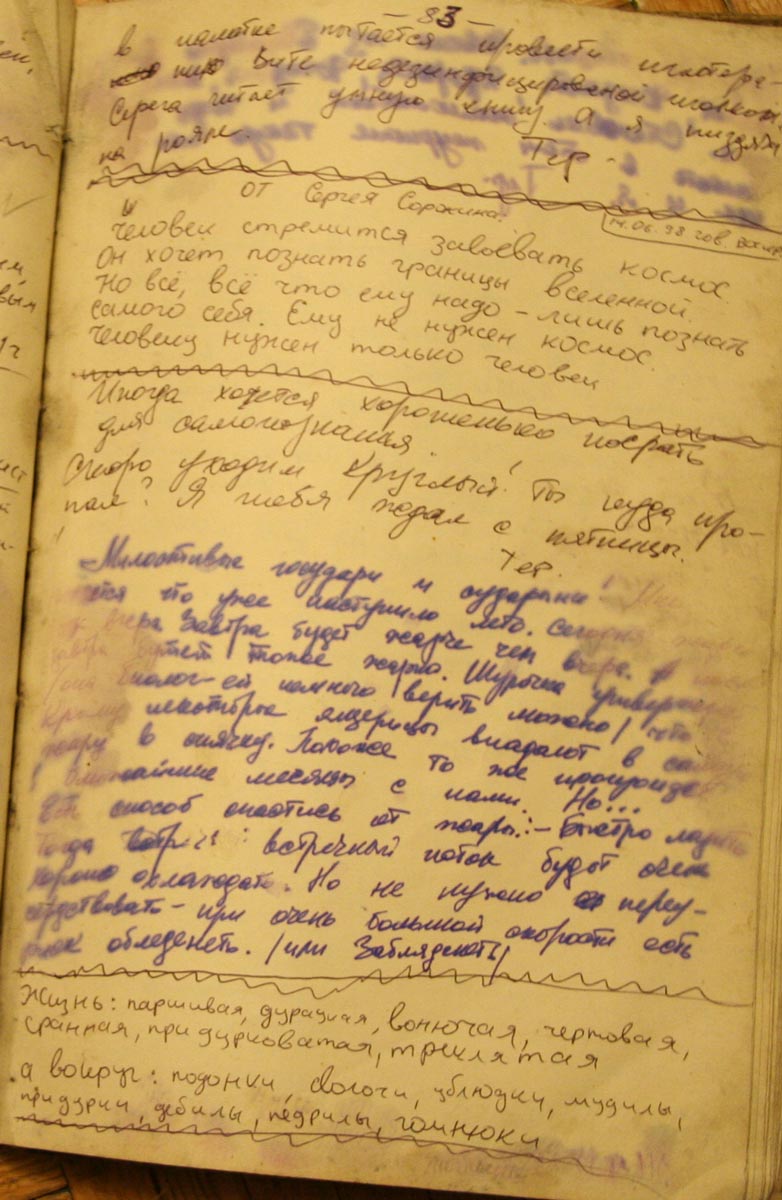 — 83 —
в палатке пытается провести
Вите недезинфицированой иголкой.
Серёга читает умную книгу. А я
на рояле.
Тер.
ОТ Сергея Соржина.
14.06.98
Человек стремится завоевать космос
Он хочет познать границы вселенной.
Но всё, всё что ему надо – лишь познать
самого себя. Ему не нужен космос.
Человеку нужен только человек
Иногда хочется хорошенько посрать
для самопознания.
Скоро уходим Круглый! Ты куда про-
пал? Я тебя ждал с пятницы.
Тер.
– Милостивые государи и сударыни!
что уже наступило лето. Сегодня
вчера Завтра будет жарче чем вчера. А
будет тоже жарко. Шурочка
/она биолог – ей немного верить можно/ что
некоторые ящерицы впадают в
жару в спячку. Похоже то же произойдёт
месяцы с нами. Но...
Есть способ спастись от жары: – Быстро
Тогда встречный поток будет очень
хорошо охлаждать. Но не нужно переу-
сердствовать – при очень большой скорости есть
обледенеть. /или Заблядснеть/
Жизнь: паршивая, дурацкая, вонючая, чертовая,
сранная, придурковатая, треклятая
а вокруг: подонки, сволочи, ублюдки, мудилы,
придурки, дебилы, педрилы, гомнюки